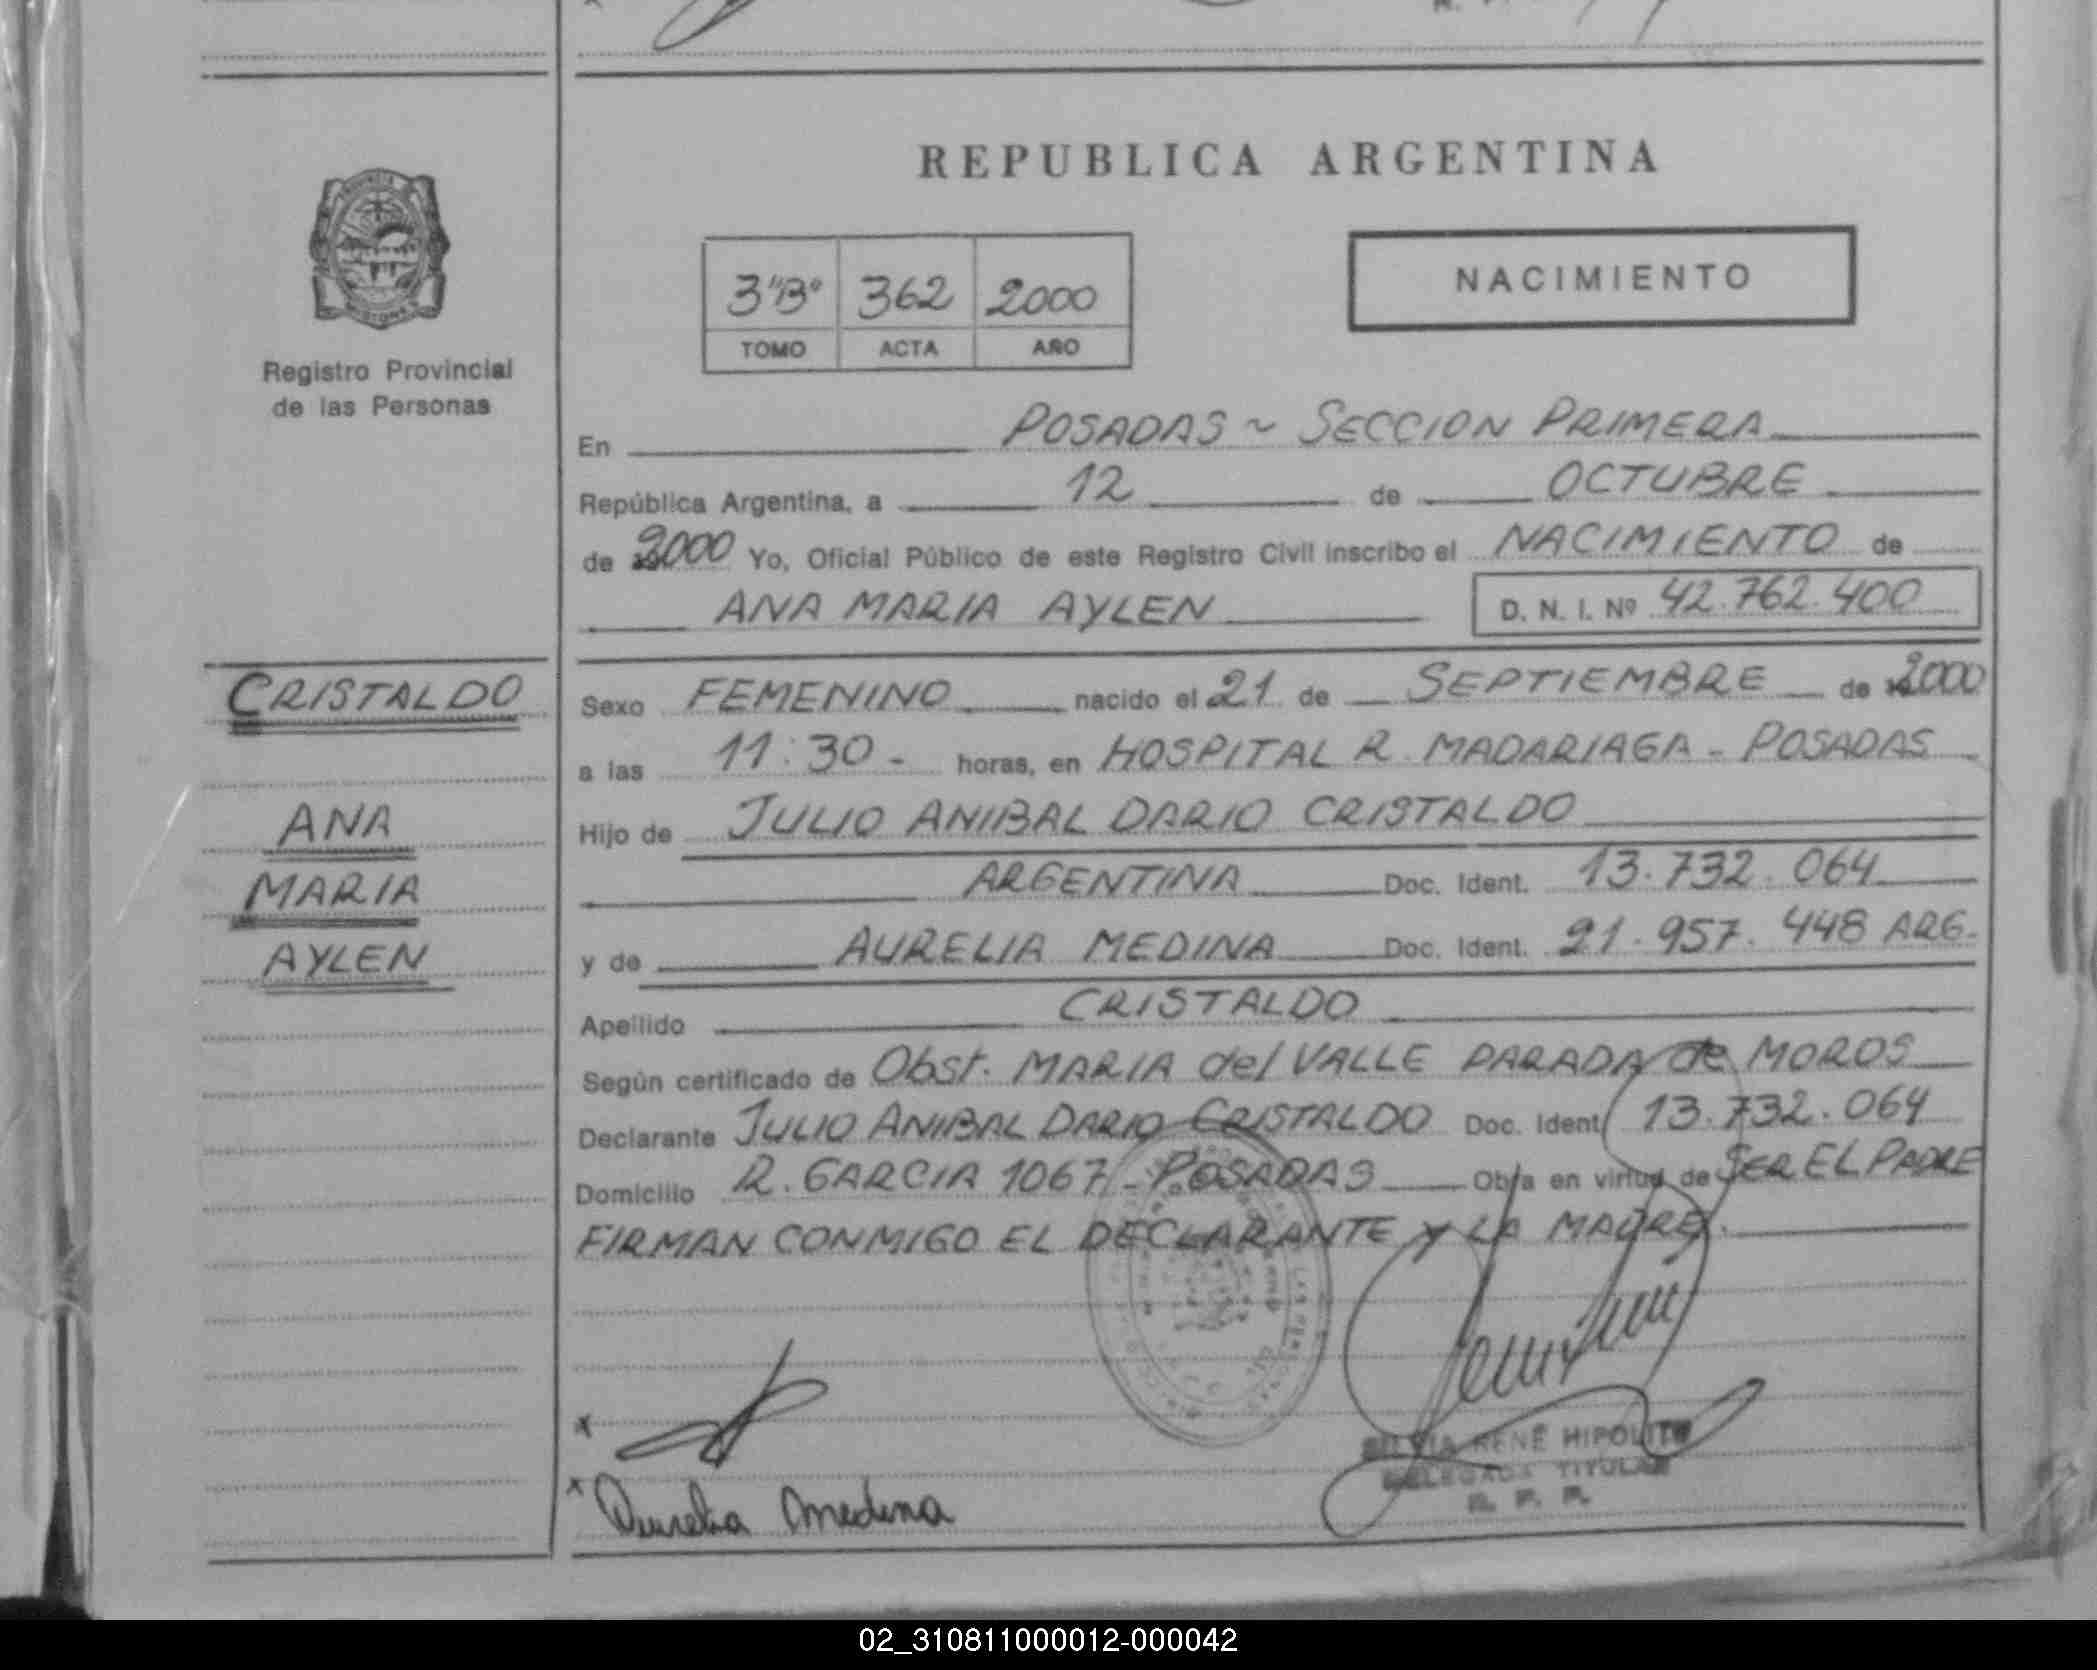 REPUBLICA ARGENTINA
3"B" 362 2000
TOMO ACTA AÑO
NACIMIENTO
Registro Provincial
de las Personas
En POSADAS ~ SECCION PRIMERA
República Argentina, a 12 de OCTUBRE
de 2000 Yo, Oficial Público de este Registro Civil inscribo el NACIMIENTO de
ANA MARIA AYLEN D. N. I. Nº 42.762.400
CRISTALDO
ANA
MARIA
AYLEN
Sexo FEMENINO nacido el 21 de SEPTIEMBRE de 2000
a las 11:30 - horas, en HOSPITAL R. MADARIAGA - POSADAS
Hijo de JULIO ANIBAL DARIO CRISTALDO
ARGENTINA Doc. Ident. 13.732.064
y de AURELIA MEDINA Doc. Ident. 21.957.448 ARG.
Apellido CRISTALDO
Según certificado de Obst. MARIA del VALLE PARADA de MOROS
Declarante JULIO ANIBAL DARIO CRISTALDO Doc. Ident 13.732.064
Domicilio R. GARCIA 1067 - POSADAS Obra en virtud de SER EL PADRE
FIRMAN CONMIGO EL DECLARANTE Y LA MADRE.
x
x Aurelia Medina
SILVIA RENÉ HIPOLITO
DELEGADA TITULAR
R. P. P.
02_310811000012-000042